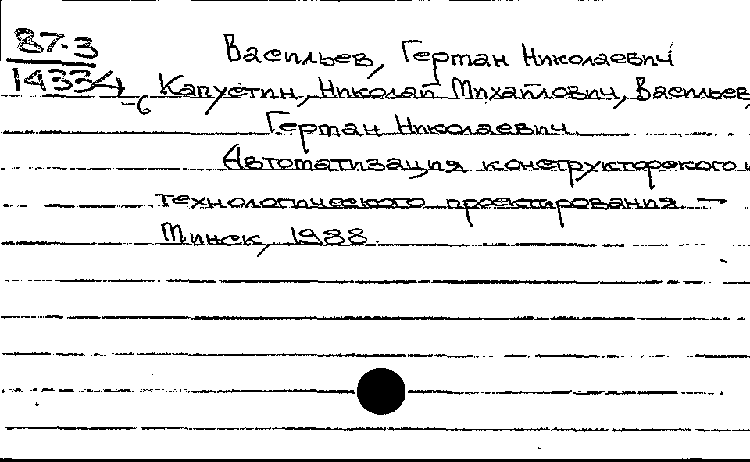 87-3
Васильев, Герман Николаевич
14334-6
Капустин, Николай Михайлович, Васильев,
Герман Николаевич
Автоматизация конструкторского и
технологического проектирования –
Минск, 1988.